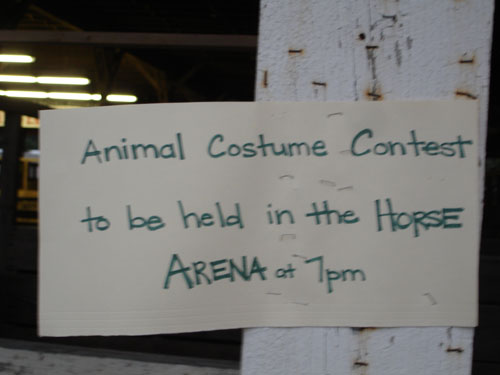 Animal Costume Contest
to be held in the HORSE
ARENA at 7pm